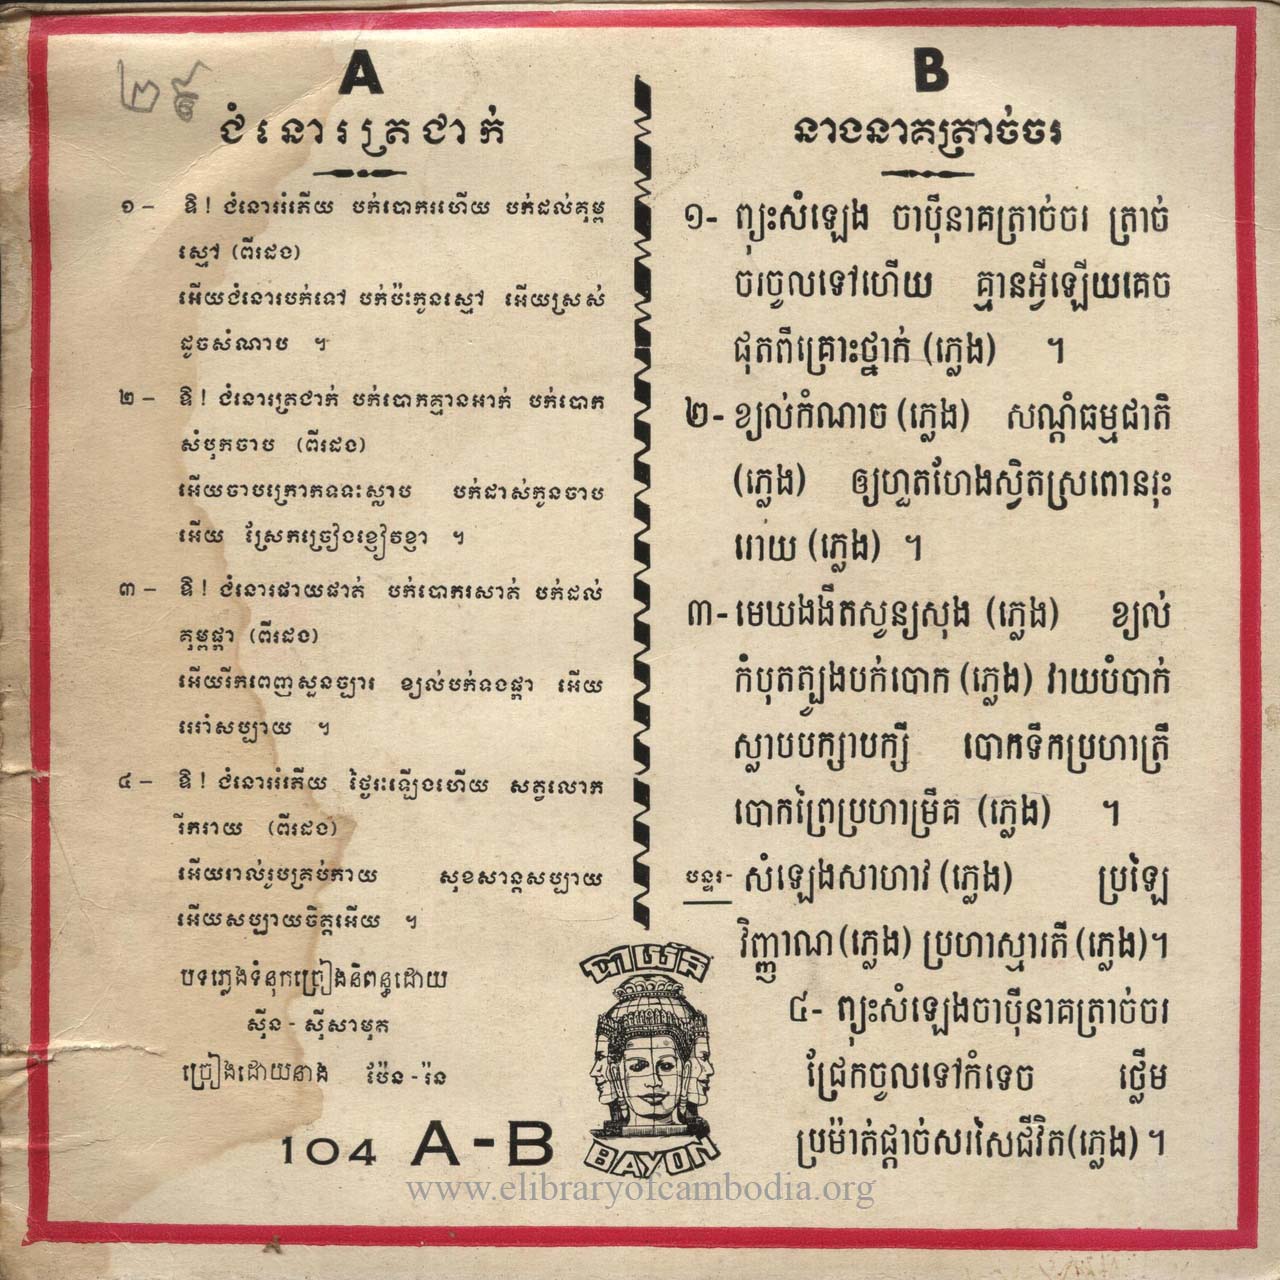 ២៩
A
ជំនោរត្រជាក់
១ – ឱ ! ជំនោររំភើយ បក់បោករហើយ បក់ដល់គុម្ព
ស្មៅ (ពីរដង)
អើយជំនោរបក់ទៅ បក់ប៉ះកូនស្មៅ អើយស្រស់
ដូចសំណាប ។
២ – ឱ ! ជំនោរត្រជាក់ បក់បោកគ្មានអាក់ បក់បោក
សំបុកចាប (ពីរដង)
អើយចាបក្រោកទទះស្លាប បក់ដាស់កូនចាប
អើយ ស្រែកច្រៀងខ្ញៀវខ្ញា ។
៣ – ឱ ! ជំនោរផាយផាត់ បក់បោករសាត់ បក់ដល់
គុម្ពផ្កា (ពីរដង)
អើយរីកពេញសួនច្បារ ខ្យល់បក់ទងផ្កា អើយ
អរោំសប្បាយ ។
៤ – ឱ ! ជំនោររំភើយ ថ្ងៃរះឡើងហើយ សត្វលោក
រីករាយ (ពីរដង)
អើយរាល់រូបគ្រប់កាយ សុខសាន្តសប្បាយ
អើយសប្បាយចិត្តអើយ ។
បទភ្លេងទំនុកច្រៀងនិពន្ធដោយ
ស៊ីន - ស៊ីសាមុត
ច្រៀងដោយនាង ប៉ែន - រ៉ន
104 A-B
B
នាងនាគត្រាច់ចរ
១- ព្យុះសំឡេង ចាប៉ីនាគត្រាច់ចរ ត្រាច់
ចរចូលទៅហើយ គ្មានអ្វីឡើយគេច
ផុតពីគ្រោះថ្នាក់ (ភ្លេង) ។
២- ខ្យល់កំណាច (ភ្លេង) សណ្ដំធម្មជាតិ
(ភ្លេង) ឲ្យហួតហែងស្វិតស្រពោនរុះ
រោយ (ភ្លេង) ។
៣- មេឃងងឹតសូន្យសុង (ភ្លេង) ខ្យល់
កំបុតត្បូងបក់បោក (ភ្លេង) វាយបំបាក់
ស្លាបបក្សាបក្សី បោកទឹកប្រហាត្រី
បោកព្រៃប្រហាម្រឹគ (ភ្លេង) ។
បន្ទរ- សំឡេងសាហាវ (ភ្លេង) ប្រឡៃ
វិញ្ញាណ (ភ្លេង) ប្រហាស្មារតី (ភ្លេង) ។
៤- ព្យុះសំឡេងចាប៉ីនាគត្រាច់ចរ
ជ្រែកចូលទៅកំទេច ថ្លើម
ប្រម៉ាត់ផ្ដាច់សរសៃជីវិត (ភ្លេង) ។
បាយ័ន
BAYON
www.elibraryofcambodia.org